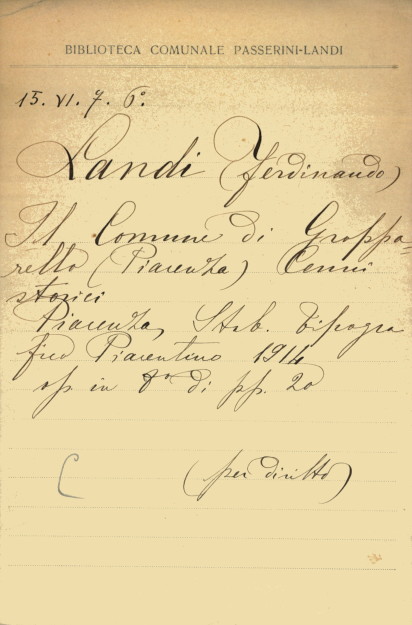 BIBLIOTECA COMUNALE PASSERINI-LANDI
15. VI. 7. 6º.
Landi (Ferdinando)
Il Comune di Groppa=
rello (Piacenza) Cenni
storici
Piacenza, Stab. Tipogra
fico Piacentino 1914
op. in 8º di pp. 20
C (per diritto)